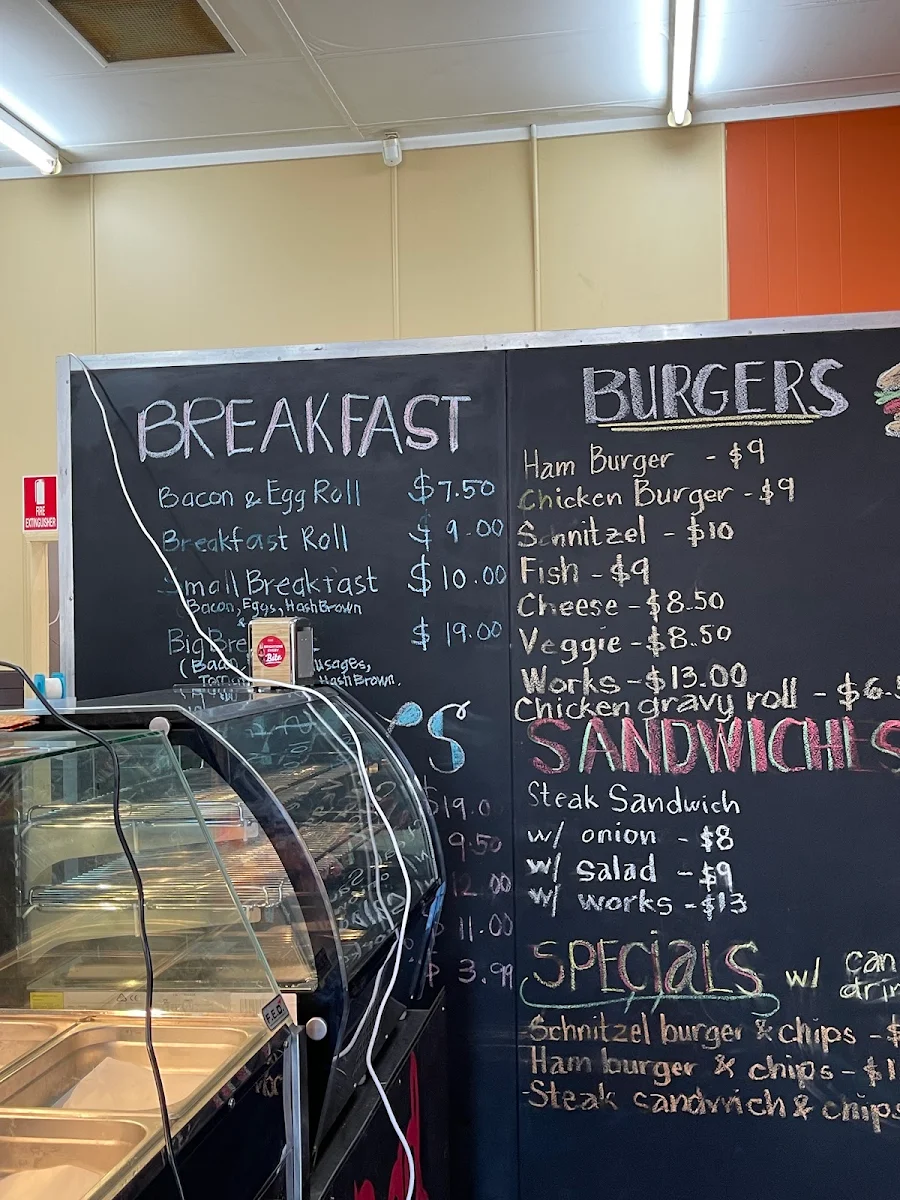 FIRE
EXTINGUISHER
BREAKFAST
Bacon & Egg Roll $7.50
Breakfast Roll $ 9.00
Small Breakfast $10.00
(Bacon, Eggs, Hash Brown
$ 19.00
Hash Brown.
$19.0
9.50
12.00
11.00
$ 3.99
BURGERS
Ham Burger - $9
Chicken Burger - $9
Schnitzel - $10
Fish - $9
Cheese - $8.50
Veggie - $8.50
Works - $13.00
Chicken gravy roll - $6.
SANDWICHES
Steak Sandwich
w/ onion - $8
w/ salad - $9
w/ works - $13
SPECIALS w/ can
Schnitzel burger & chips - $
Ham burger & chips - $1
Steak sandwich & chips
F.E.D.